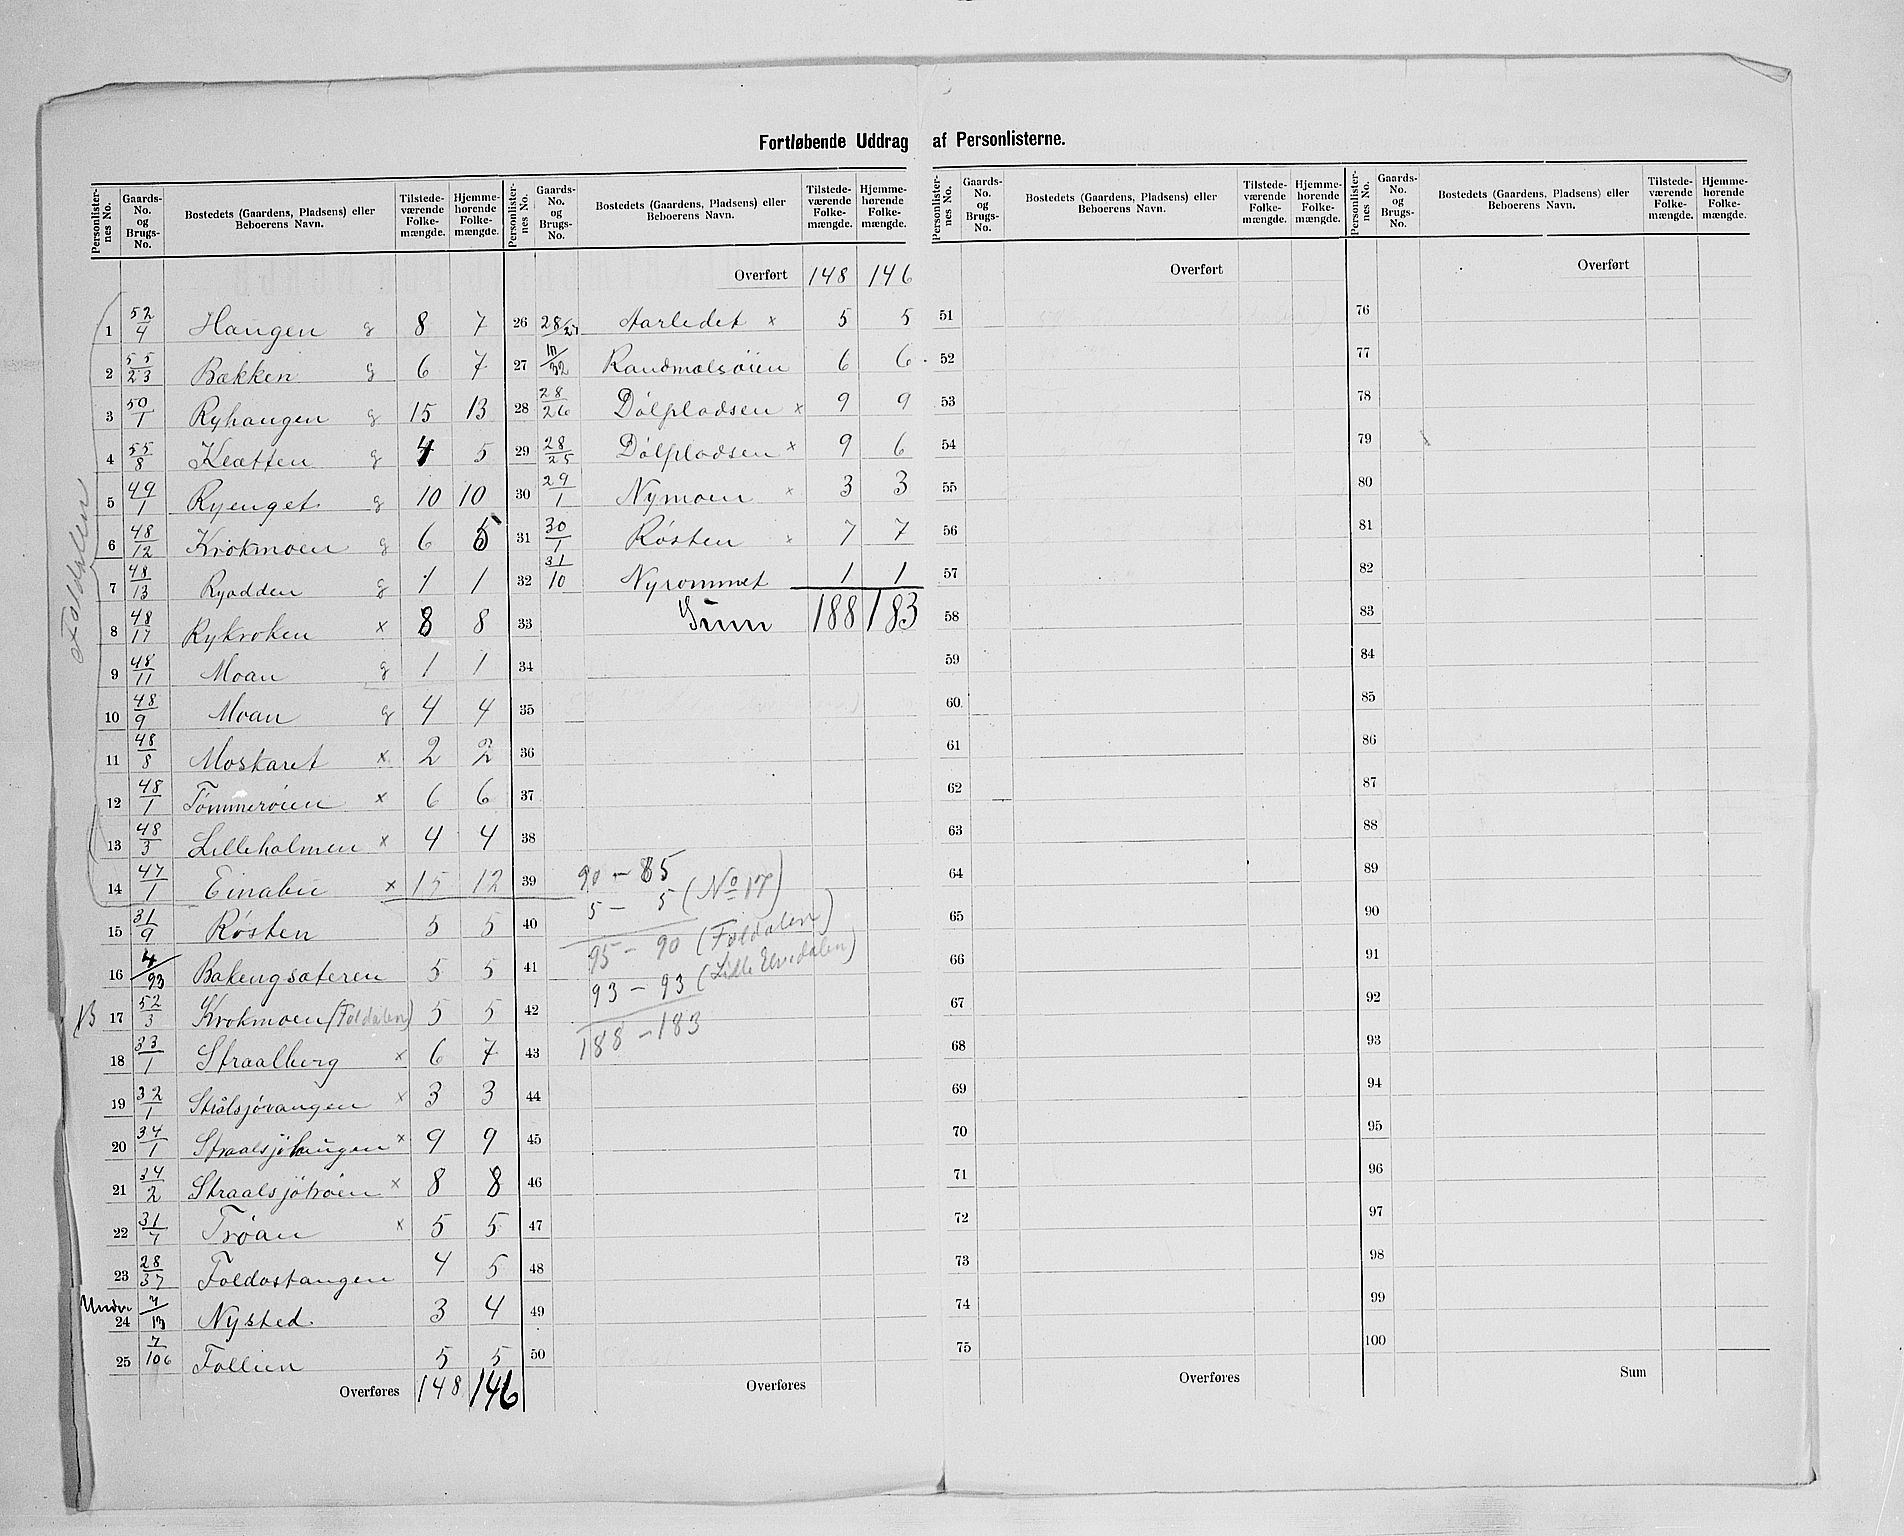 Fortløbende Uddrag af Personlisterne.
Personlisternes No. Gaards-No. og Brugs-No. Bostedets (Gaardens, Pladsens) eller Beboerens Navn. Tilstedeværende Folkemængde. Hjemmehørende Folkemængde.
Foldalen
1 52/4 Haugen g 8 7
2 55/23 Bækken g 6 7
3 50/1 Ryhaugen g 15 13
4 55/8 Klætten g 4 5
5 49/1 Ryenget g 10 10
6 48/12 Krokmoen g 6 5
7 48/13 Ryodden g 1 1
8 48/17 Rykroken x 8 8
9 48/11 Moan g 1 1
10 48/9 Moan g 4 4
11 48/8 Moskaret x 2 2
12 48/1 Tømmerøien x 6 6
13 48/3 Lilleholmen x 4 4
14 47/1 Einabu x 15 12
15 31/9 Røsten 5 5
16 4/93 Bakengsæteren 5 5
NB 17 52/3 Krokmoen (Foldalen) 5 5
18 33/1 Straalberg x 6 7
19 32/1 Strålsjøvangen x 3 3
20 34/1 Straalsjøhaugen x 9 9
21 34/2 Straalsjøtrøen x 8 8
22 31/7 Trøan x 5 5
23 28/37 Foldostangen 4 5
24 Nysted. 3 4
25 7/106 Follien 5 5
Overføres 148 146
Personlisternes No. Gaards-No. og Brugs-No. Bostedets (Gaardens, Pladsens) eller Beboerens Navn. Tilstedeværende Folkemængde. Hjemmehørende Folkemængde.
Overført 148 146
26 28/27 Aarledet x 5 5
27 Randmælsøien 6 6
28 28/26 Dølpladsen x 9 9
29 28/25 Dølpladsen x 9 6
30 29/1 Nymoen x 3 3
31 30/1 Røsten x 7 7
32 31/10 Nyrommet 1 1
33 Sum 188 183
34
35
36
37
38
39 90 - 85
5 - 5 (No 17)
40
95 - 90 (Foldalen)
41
93 - 93 (Lille Elvedalen)
42
188 - 183
43
44
45
46
47
48
49
50
Overføres
Personlisternes No. Gaards-No. og Brugs-No. Bostedets (Gaardens, Pladsens) eller Beboerens Navn. Tilstedeværende Folkemængde. Hjemmehørende Folkemængde.
Overført
51
52
53
54
55
56
57
58
59
60
61
62
63
64
65
66
67
68
69
70
71
72
73
74
75
Overføres
Personlisternes No. Gaards-No. og Brugs-No. Bostedets (Gaardens, Pladsens) eller Beboerens Navn. Tilstedeværende Folkemængde. Hjemmehørende Folkemængde.
Overført
76
77
78
79
80
81
82
83
84
85
86
87
88
89
90
91
92
93
94
95
96
97
98
99
100
Sum